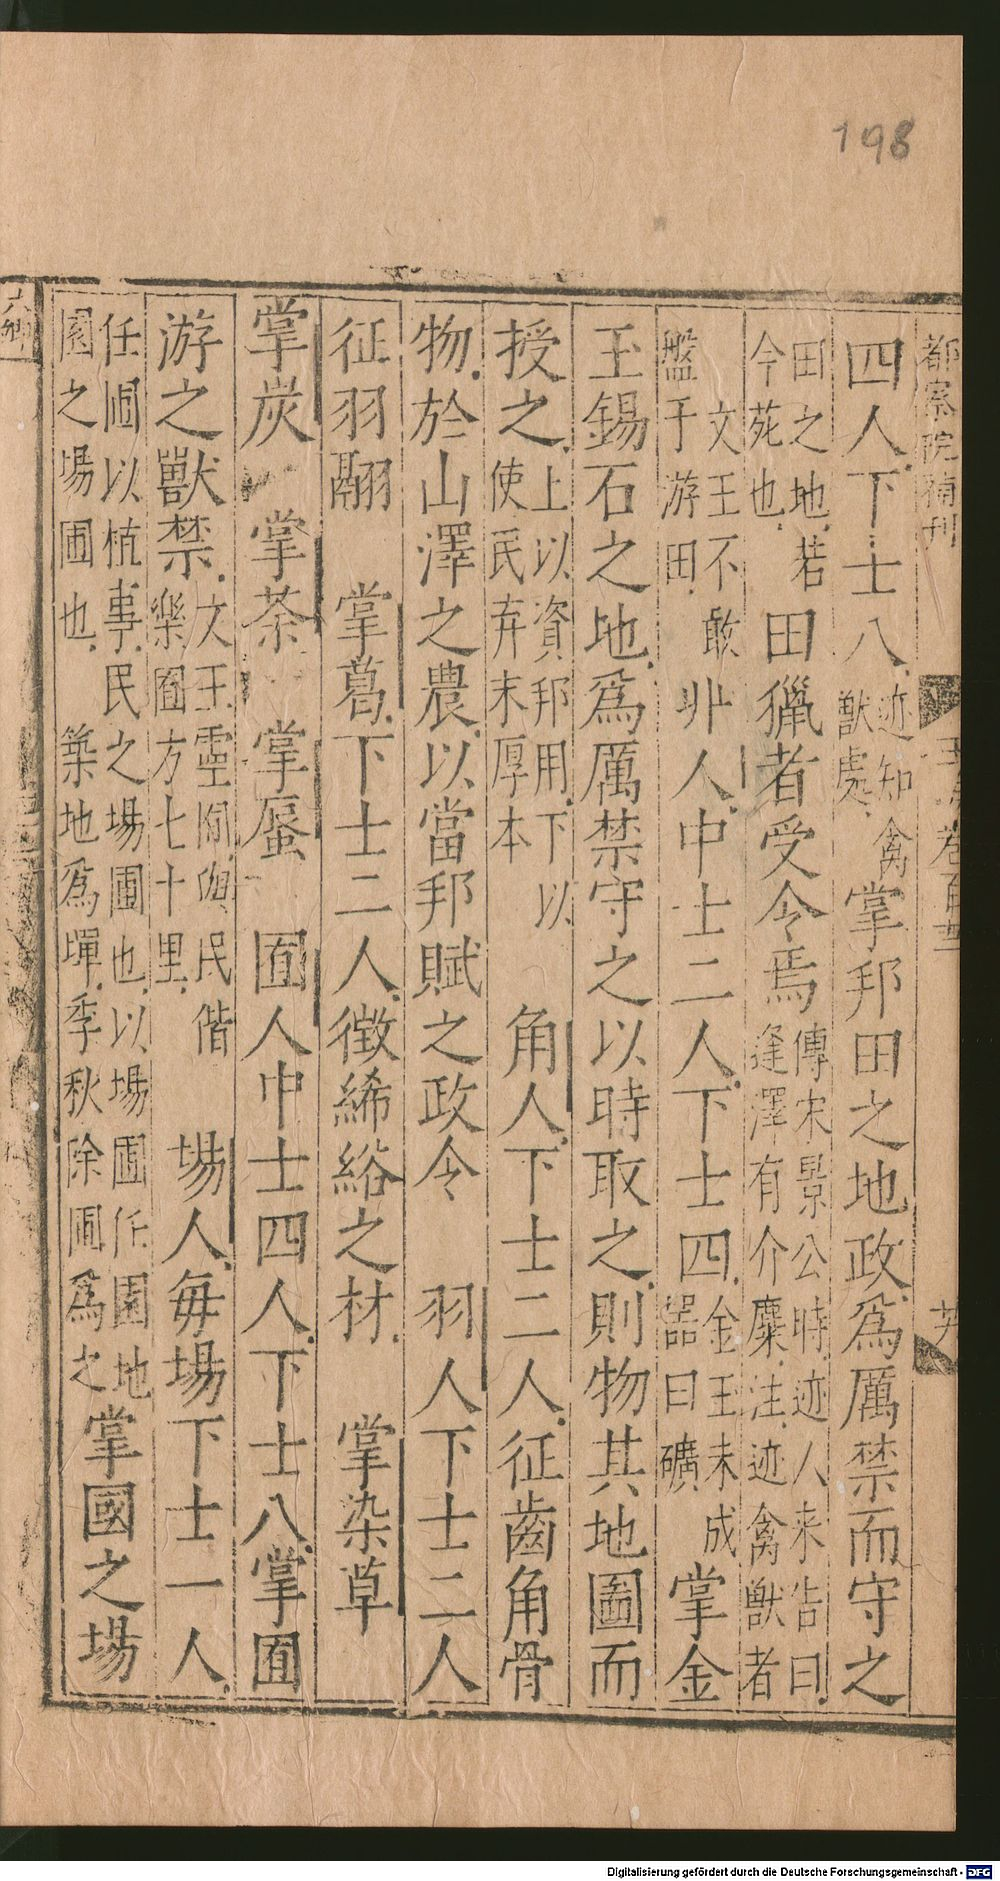 198
都察院補刊
玉海卷百廿
四人下士八迹知禽獸處掌邦田之地政爲厲禁而守之
田之地若今苑也田獵者受令焉傳宋景公時迹人來告曰逢澤有介麋注迹禽獸者
文王不敢盤于游田丱人中士二人下士四金玉未成器曰礦掌金
玉錫石之地爲厲禁守之以時取之則物其地圖而
授之上以資邦用下以使民弃末厚本角人下士二人征齒角骨
物於山澤之農以當邦賦之政令羽人下士二人
征羽翮掌葛下士二人徵絺綌之材掌染草
掌炭掌荼掌蜃囿人中士四人下士八掌囿
游之獸禁文王靈囿民偕樂囿方七十里場人每場下士一人
任圃以植事民之場圃也以場圃任園地園之場圃也築地爲墠季秋除圃爲之掌國之場
六卿
Digitalisierung gefördert durch die Deutsche Forschungsgemeinschaft - DFG